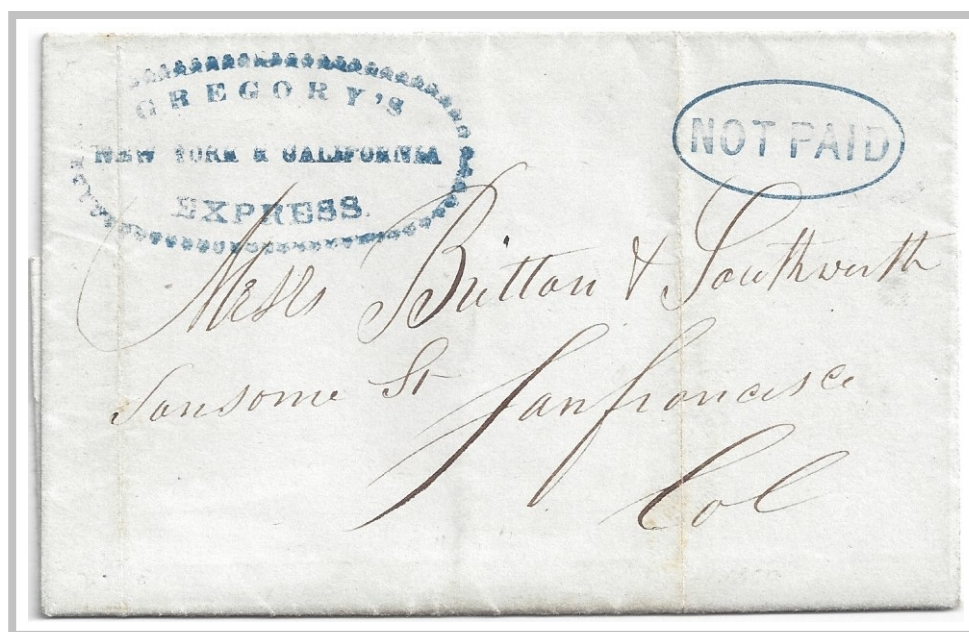 GREGORY'S
NEW YORK & CALIFORNIA
EXPRESS.
NOT PAID
Messrs Britton & Southworth
Sansome St San francisco
Cal